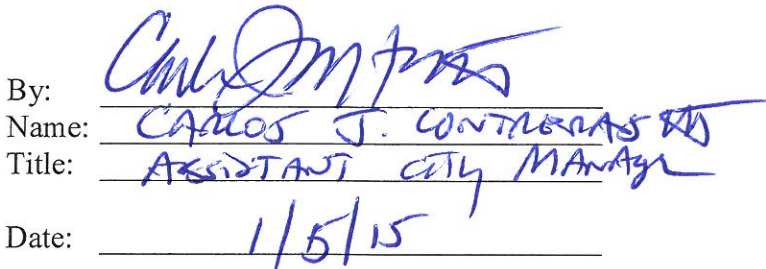 By:
Name: CARLOS J. CONTRERAS III
Title: ASSISTANT CITY MANAGER
Date: 1/5/15